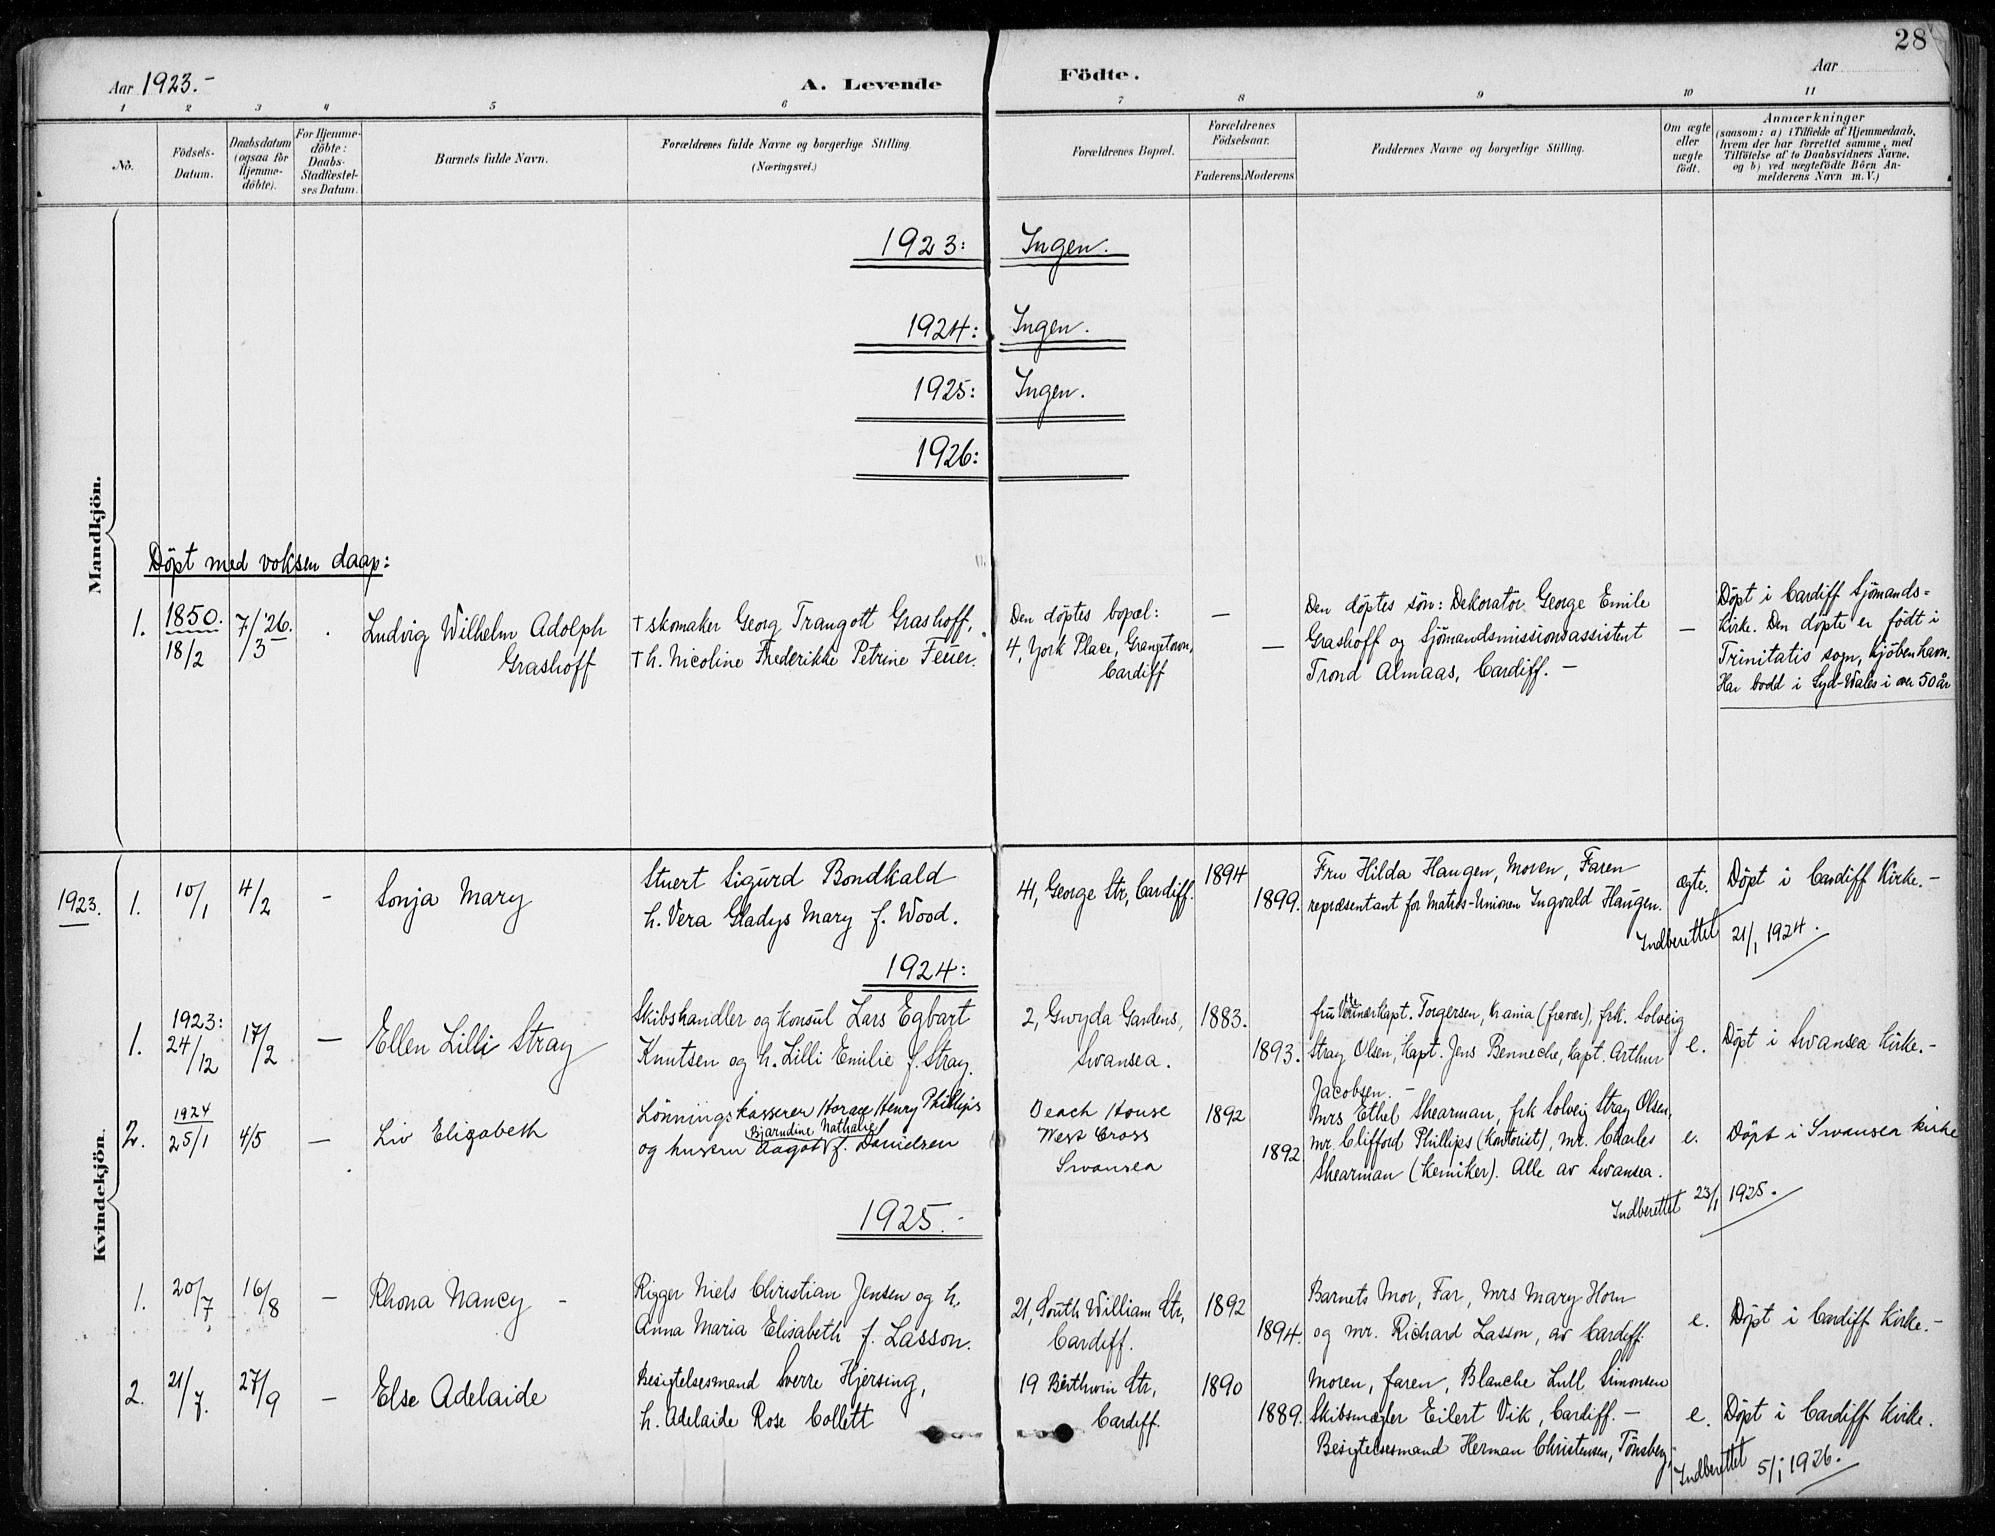 28
Aar 1923.-
A. Levende Födte.
Aar
1 2 3 4 5 6 7 8 9 10 11
No.
Födsels-Datum.
Daabsdatum (ogsaa for Hjemmedöbte).
For Hjemmedöbte: Daabs-Stadfæstelses Datum.
Barnets fulde Navn.
Forældrenes fulde Navne og borgerlige Stilling.
(Næringsvei.)
Forældrenes Bopæl.
Forældrenes Födselsaar.
Faderens. Moderens.
Faddernes Navne og borgerlige Stilling.
Om ægte eller uægte födt.
Anmærkninger
(saasom: a) i Tilfælde af Hjemmedaab, hvem der har forrettet samme, med Tilföielse af to Daabsvidners Navne, og b) ved uægtefödte Börn Anmelderens Navn m. V.)
Mandkjön.
1923: Ingen.
1924: Ingen.
1925: Ingen.
1926:
Döpt med voksen daap:
1.
1850.
18/2
7/3 '26.
Ludvig Wilhelm Adolph
Grashoff
† skomaker Georg Traugott Grashoff,
† h. Nicoline Frederikke Petrine Feuer.
Den döptes bopæl:
4, York Place, Grangetown,
Cardiff
—
—
Den döptes sön: Dekoratör George Emile
Grashoff og Sjömandsmissionsassistent
Trond Almaas, Cardiff. —
—
Döpt i Cardiff Sjömands=
kirke. Den döpte er födt i
Trinitatis sogn, Kjöbenhavn.
Har bodd i Syd-Wales i over 50 år
Kvindekjön.
1923.
1.
10/1
4/2
-
Sonja Mary
Stuert Sigurd Bondkald
h. Vera Gladys Mary f. Wood.
41, George Str, Cardiff.
1894
1899.
Fru Hilda Haugen, Moren, Faren
repræsentant for Matros-Unionen Ingvald Haugen.
ægte.
Döpt i Cardiff Kirke.-
Indberettet 21/1 1924.
1924:
1.
1923:
24/12
17/2
—
Ellen Lilli Stray
Skibshandler og Konsul Lars Egbart
Knutsen og h. Lilli Emilie f. Stray.
2, Gwyda Gardens,
Swansea.
1883.
1893.
Torgersen, Krania (fravær), frk. Solveig
Stray Olsen, Kapt. Jens Benneche, Kapt. Arthur
Jacobsen. -
e.
Döpt i Swansea Kirke.-
2.
1924
25/1
4/5
—
Liv Elizabeth
Lønningskasserer Horace Henry Phillips
Bjarndine Nathalie
og hustru Aagot f. Danielsen
House
West Cross
Swansea
1892
1892
Mrs Ethel Shearman, frk Solveig Stray Olsen,
mr. Clifford Phillips (Kontorist), mr. Charles
Shearman (Kemiker). Alle av Swansea.
e.
Döpt i Swansea kirke
Indberettet 23/1 1925.
1925.-
1.
20/7
16/8
—
Rhona Nancy -
Rigger Niels Christian Jensen og h.
Anna Maria Elisabeth f. Lasson.
21, South William Str,
Cardiff.
1892
1894.
Barnets Mor, Far, Mrs Mary Horn
og mr. Richard Lasson, av Cardiff.
e.
Döpt i Cardiff Kirke.-
2.
21/7.
27/9
—
Else Adelaide
Besigtelsesmand Sverre Hjersing,
h. Adelaide Rose Collett
19 Str,
Cardiff.
1890
1889.
Moren, faren, Blanche Lull Simonsen
Skibsmægler Eilert Vik, Cardiff. -
Besigtelsesmand Herman Christensen, Tönsberg,
e.
Döpt i Cardiff Kirke.
Indberettet 5/1 1926.